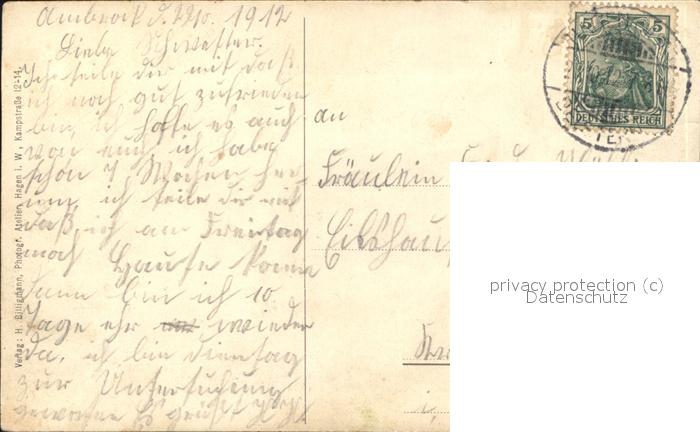 Ambrock d. 22/10. 1912
Liebe Schwester.
Ich teile dir mit daß
ich noch gut zufrieden
bin, ich hoffe es auch
von euch ich habe
schon 7 Wochen her-
um, ich teile dir mit
daß ich am Freitag
nach Hause komme
dann bin ich 10
Tage ehr wieder
da, ich bin Dienstag
zur Untersuchung
gewesen Es grüßt
an
Fräulein
Eilshau
5 5
DEUTSCHES REICH
Verlag: H. Billigmann, Photogr. Atelier, Hagen i. W., Kampstraße 12-14.
privacy protection (c)
Datenschutz